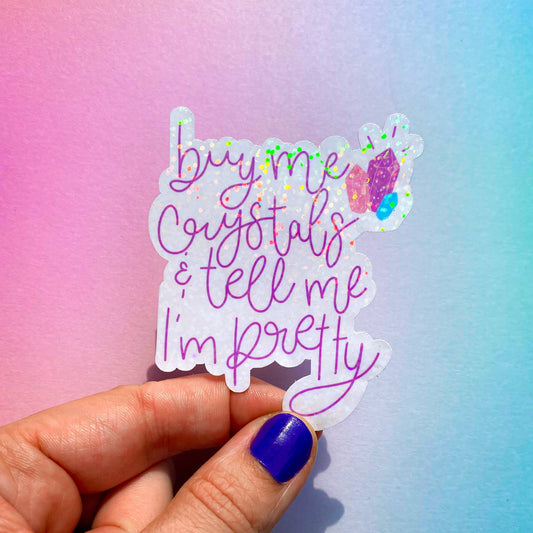 buy me
Crystals
& tell me
I'm pretty